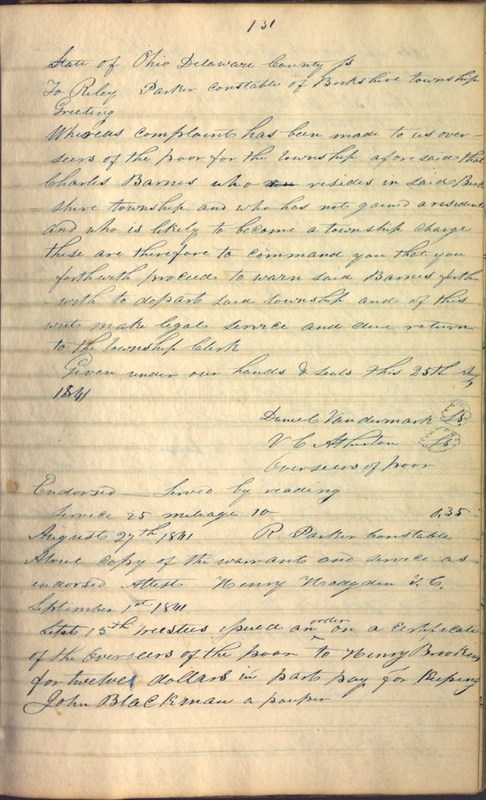 131
State of Ohio Delaware County ss
To Riley Parker Constable of Berkshire township
Greeting
Whereas complaint has been made to us over-
seers of the poor for the township aforesaid that
Charles Barnes who resides in said Berk
shire township and who has not gained a residence
and who is likely to become a township charge
these are therefore to command you that you
forthwith proceed to warn said Barnes forth
with to depart said township and of this
writ make legal service and due return
to the township Clerk
Given under our hands & seals this 25th Aug
1841
Daniel Vandermark LS
V C Atherton LS
Overseers of poor
Endorsed Served by reading
Service 25 mileage 10 0,35
August 27th 1841 R Parker Constable
Above copy of the warrant and service as
endorsed Attest Henry Hodgden T. C.
September 1st 1841
15th trustees issued an order on a Certificate
of the Overseers of the poor to Henry
for twelve dollars in part pay for keeping
John Blackman a pauper